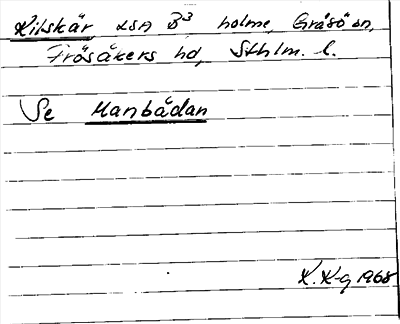 Kilskär LSA B³ holme, Gräsö sn,
Frösåkers hd, Sthlm. l.
Se Manbådan
K. K-g 1968